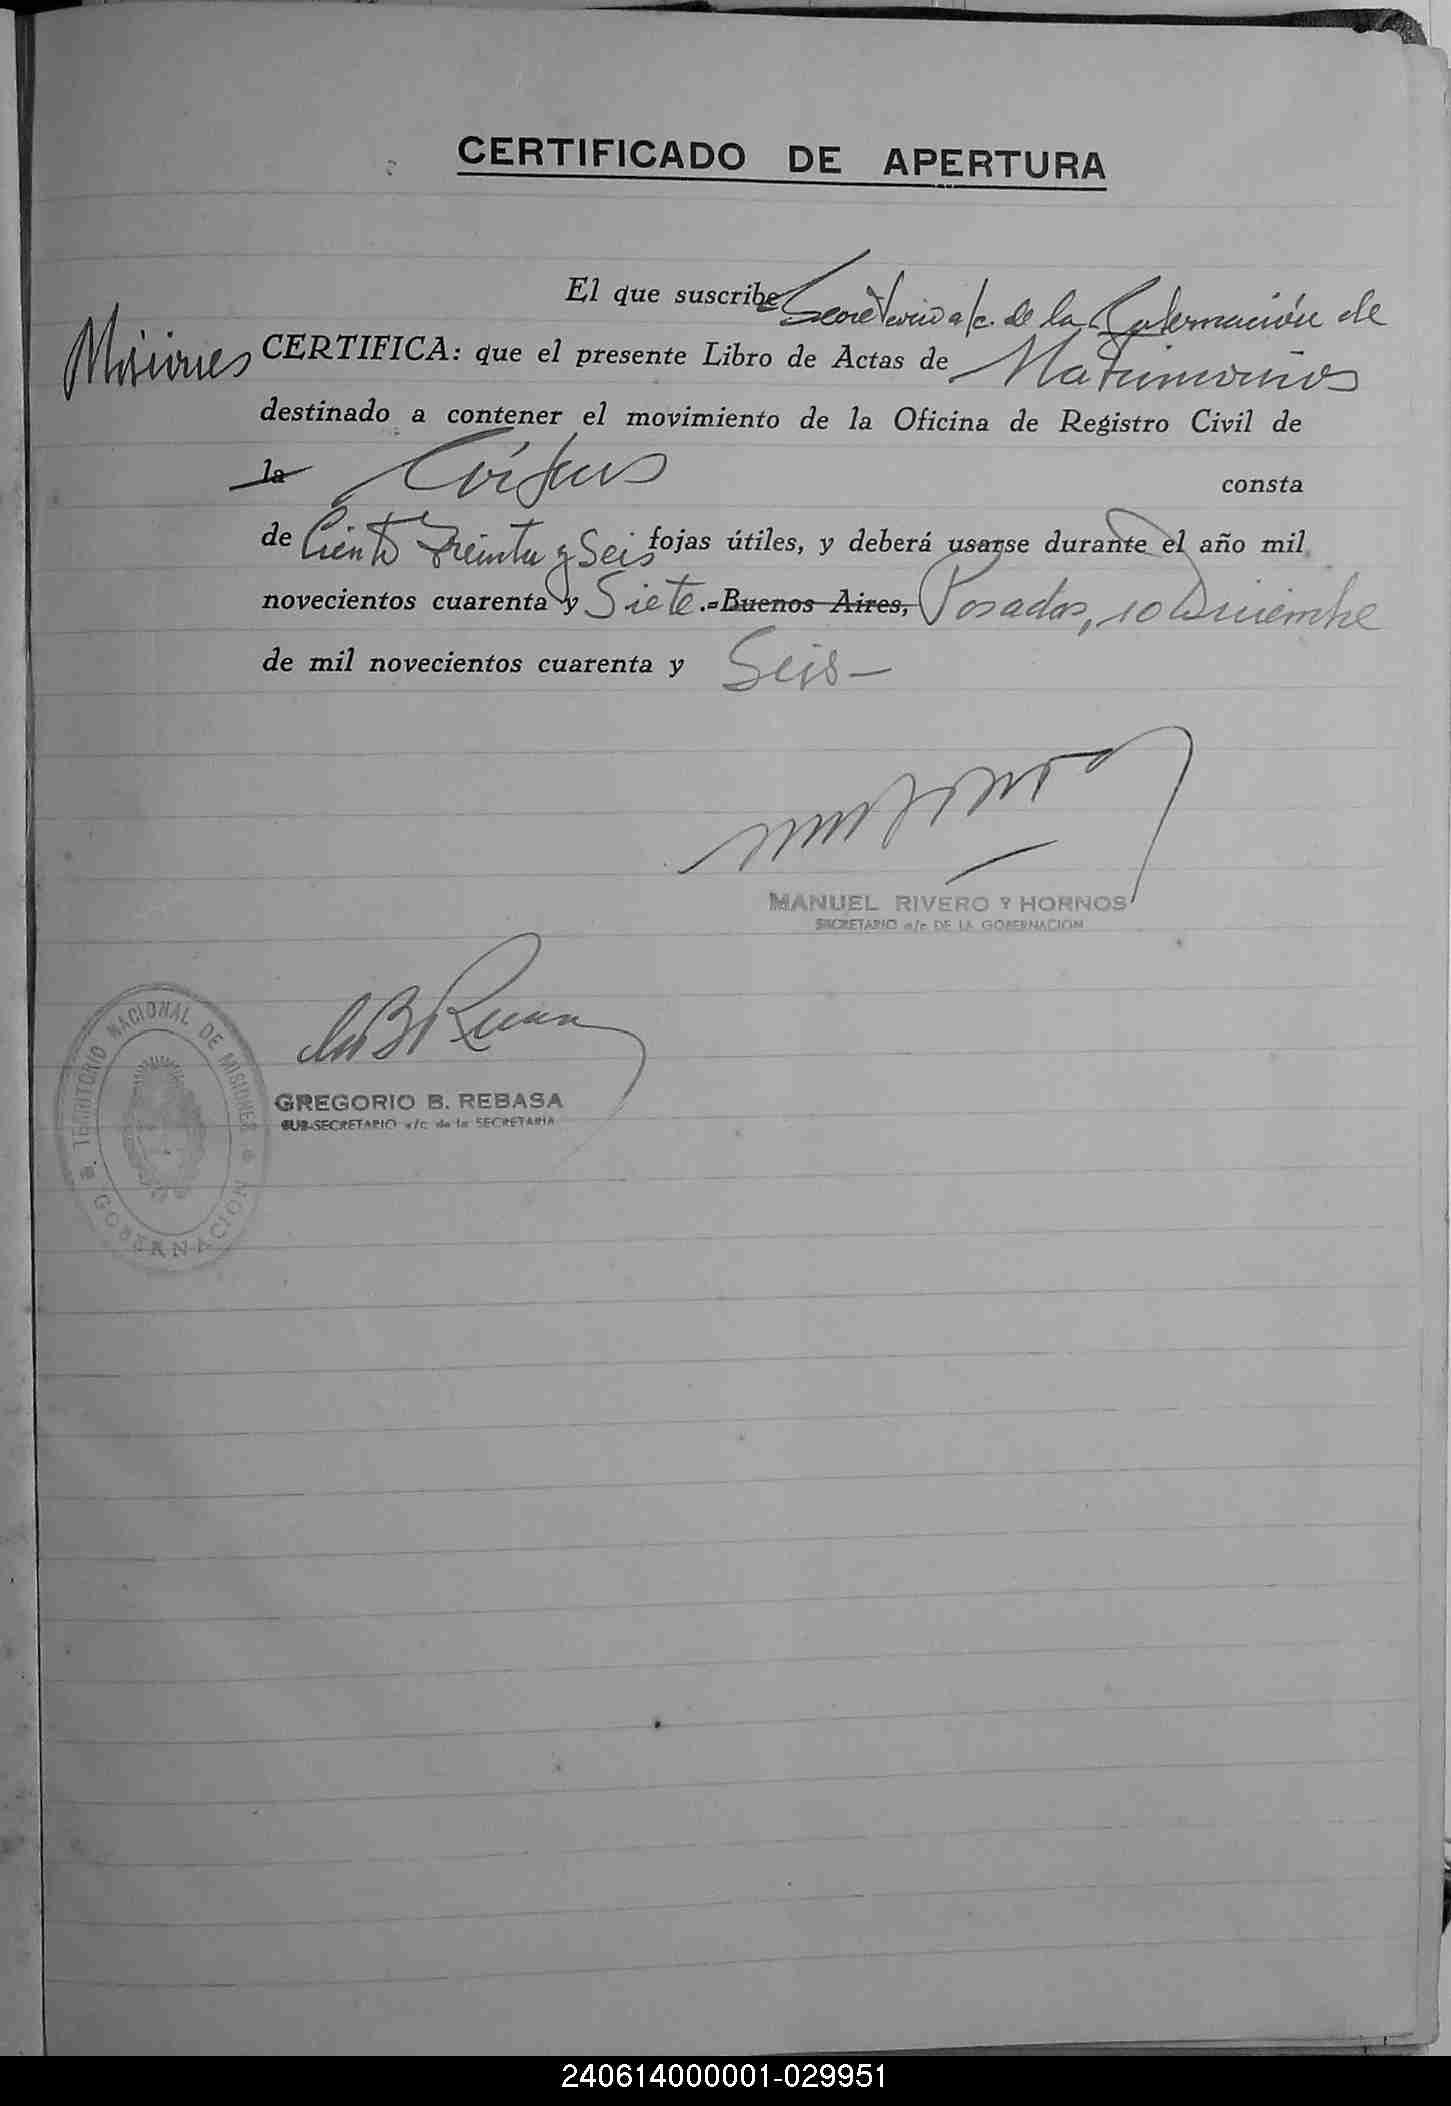 CERTIFICADO DE APERTURA
El que suscribe Secretario a/c. de la Gobernación de
Misiones CERTIFICA: que el presente Libro de Actas de Matrimonios
destinado a contener el movimiento de la Oficina de Registro Civil de
la Córpus consta
de Ciento Treinta y Seis fojas útiles, y deberá usarse durante el año mil
novecientos cuarenta y Siete.=Buenos Aires, Posadas, 10 Diciembre
de mil novecientos cuarenta y Seis—
MANUEL RIVERO Y HORNOS
SECRETARIO a/c DE LA GOBERNACION
TERRITORIO NACIONAL DE MISIONES
GOBERNACION
GREGORIO B. REBASA
SUB-SECRETARIO a/c de la SECRETARIA
240614000001-029951